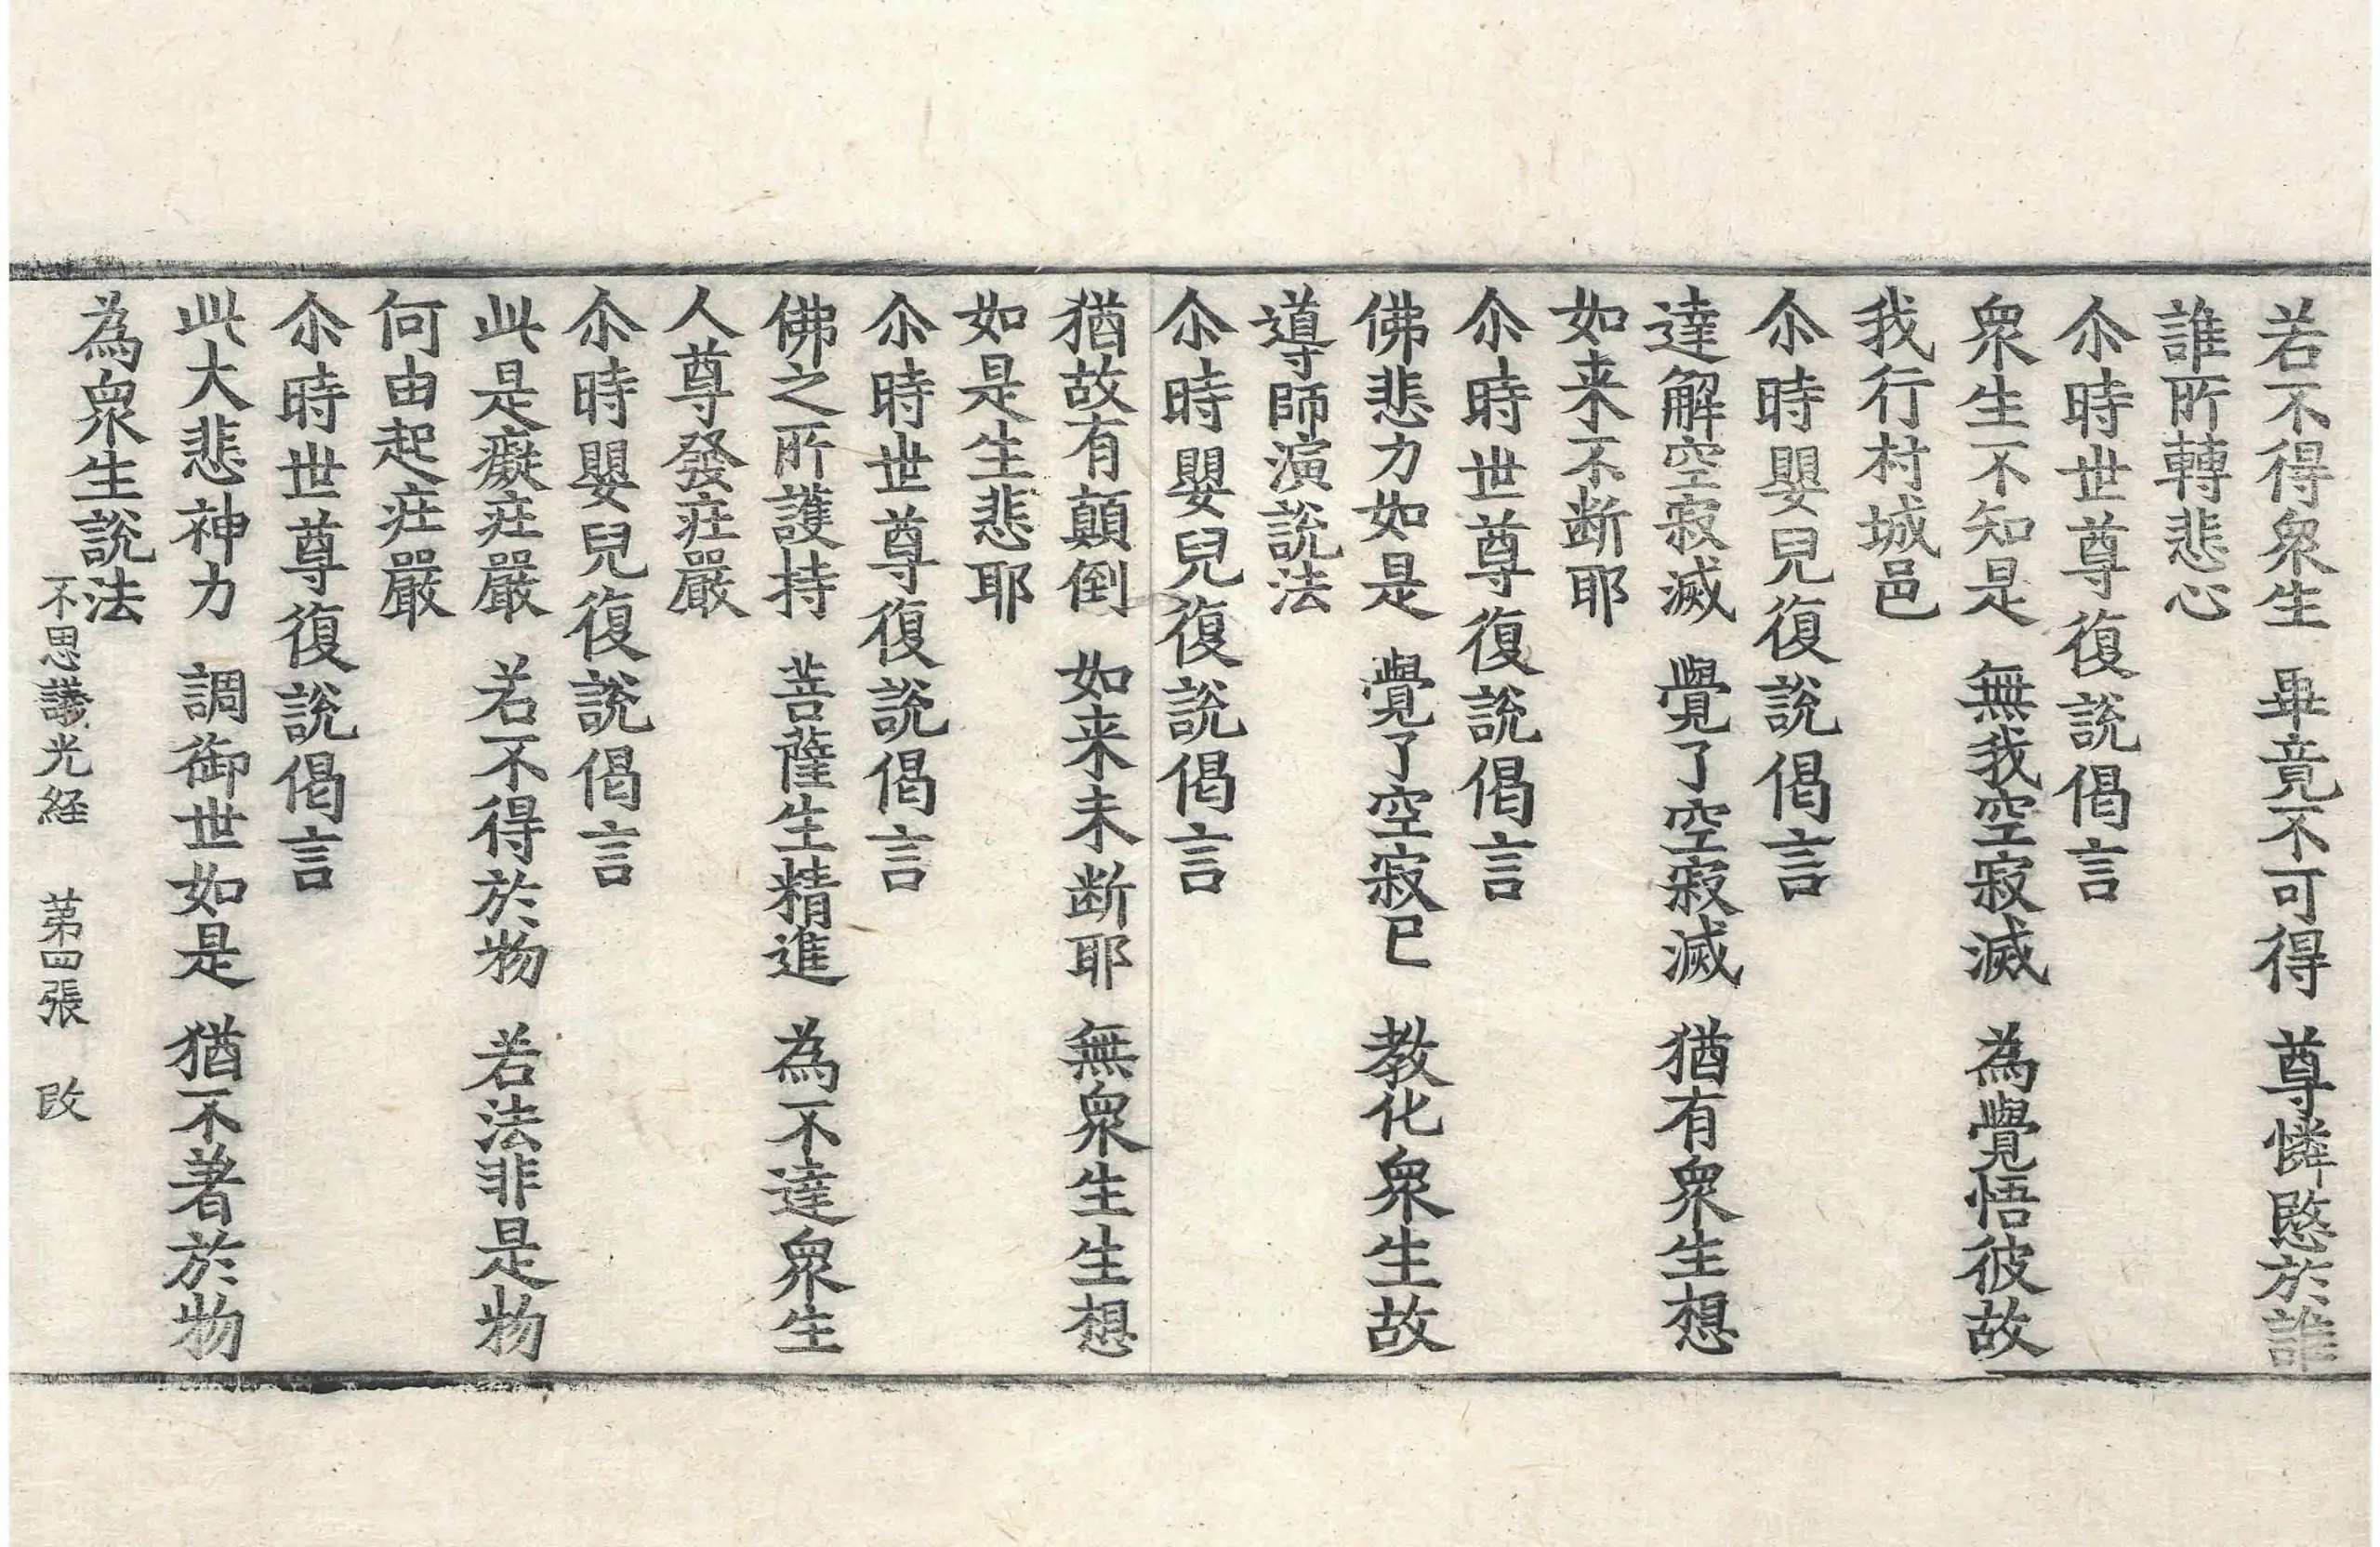 若不得衆生 畢竟不可得 尊憐愍於誰
誰所轉悲心
尒時世尊復說偈言
衆生不知是 無我空寂滅 為覺悟彼故
我行村城邑
尒時嬰兒復說偈言
達解空寂滅 覺了空寂滅 猶有衆生想
如来不断耶
尒時世尊復說偈言
佛悲力如是 覺了空寂已 教化衆生故
導師演說法
尒時嬰兒復說偈言
猶故有顛倒 如来未断耶 無衆生生想
如是生悲耶
尒時世尊復說偈言
佛之所護持 菩薩生精進 為不達衆生
人尊發疘嚴
尒時嬰兒復說偈言
此是癡疘嚴 若不得於物 若法非是物
何由起疘嚴
尒時世尊復說偈言
此大悲神力 調御世如是 猶不著於物
為衆生說法
不思議光経 第四張 改